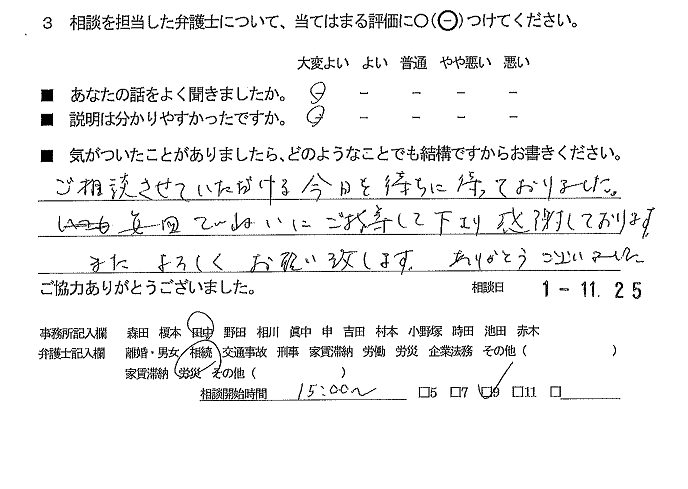 3 相談を担当した弁護士について、当てはまる評価に○(⊖)つけてください。
大変よい よい 普通 やや悪い 悪い
■ あなたの話をよく聞きましたか。 − − − − −
■ 説明は分かりやすかったですか。 − − − − −
■ 気がついたことがありましたら、どのようなことでも結構ですからお書きください。
ご相談させていただける今日を待ちに待っておりました。
いつも 毎回 ていねいにご指導して下さり 感謝しております
また よろしく お願い致します。 ありがとうございました
ご協力ありがとうございました。 相談日 1-11.25
事務所記入欄 森田 榎本 田中 野田 相川 眞中 申 吉田 村本 小野塚 時田 池田 赤木
弁護士記入欄 離婚・男女 相続 交通事故 刑事 家賃滞納 労働 労災 企業法務 その他( )
家賃滞納 労災 その他( )
相談開始時間 15:00〜 □5 □7 □9 □11 □